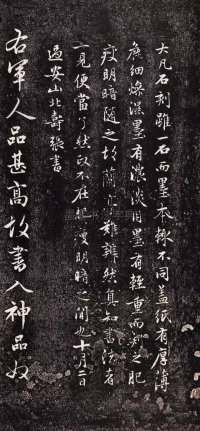 大凡石刻雖一石而墨本輒不同蓋紙有厚薄
麤細燥濕墨有濃淡用墨有輕重而刻之肥
瘦明暗隨之故蘭亭難辨然真知書法者
一見便當了然政不在肥瘦明暗之間也十月二日
過安山北壽張書
右軍人品甚高故書入神品奴